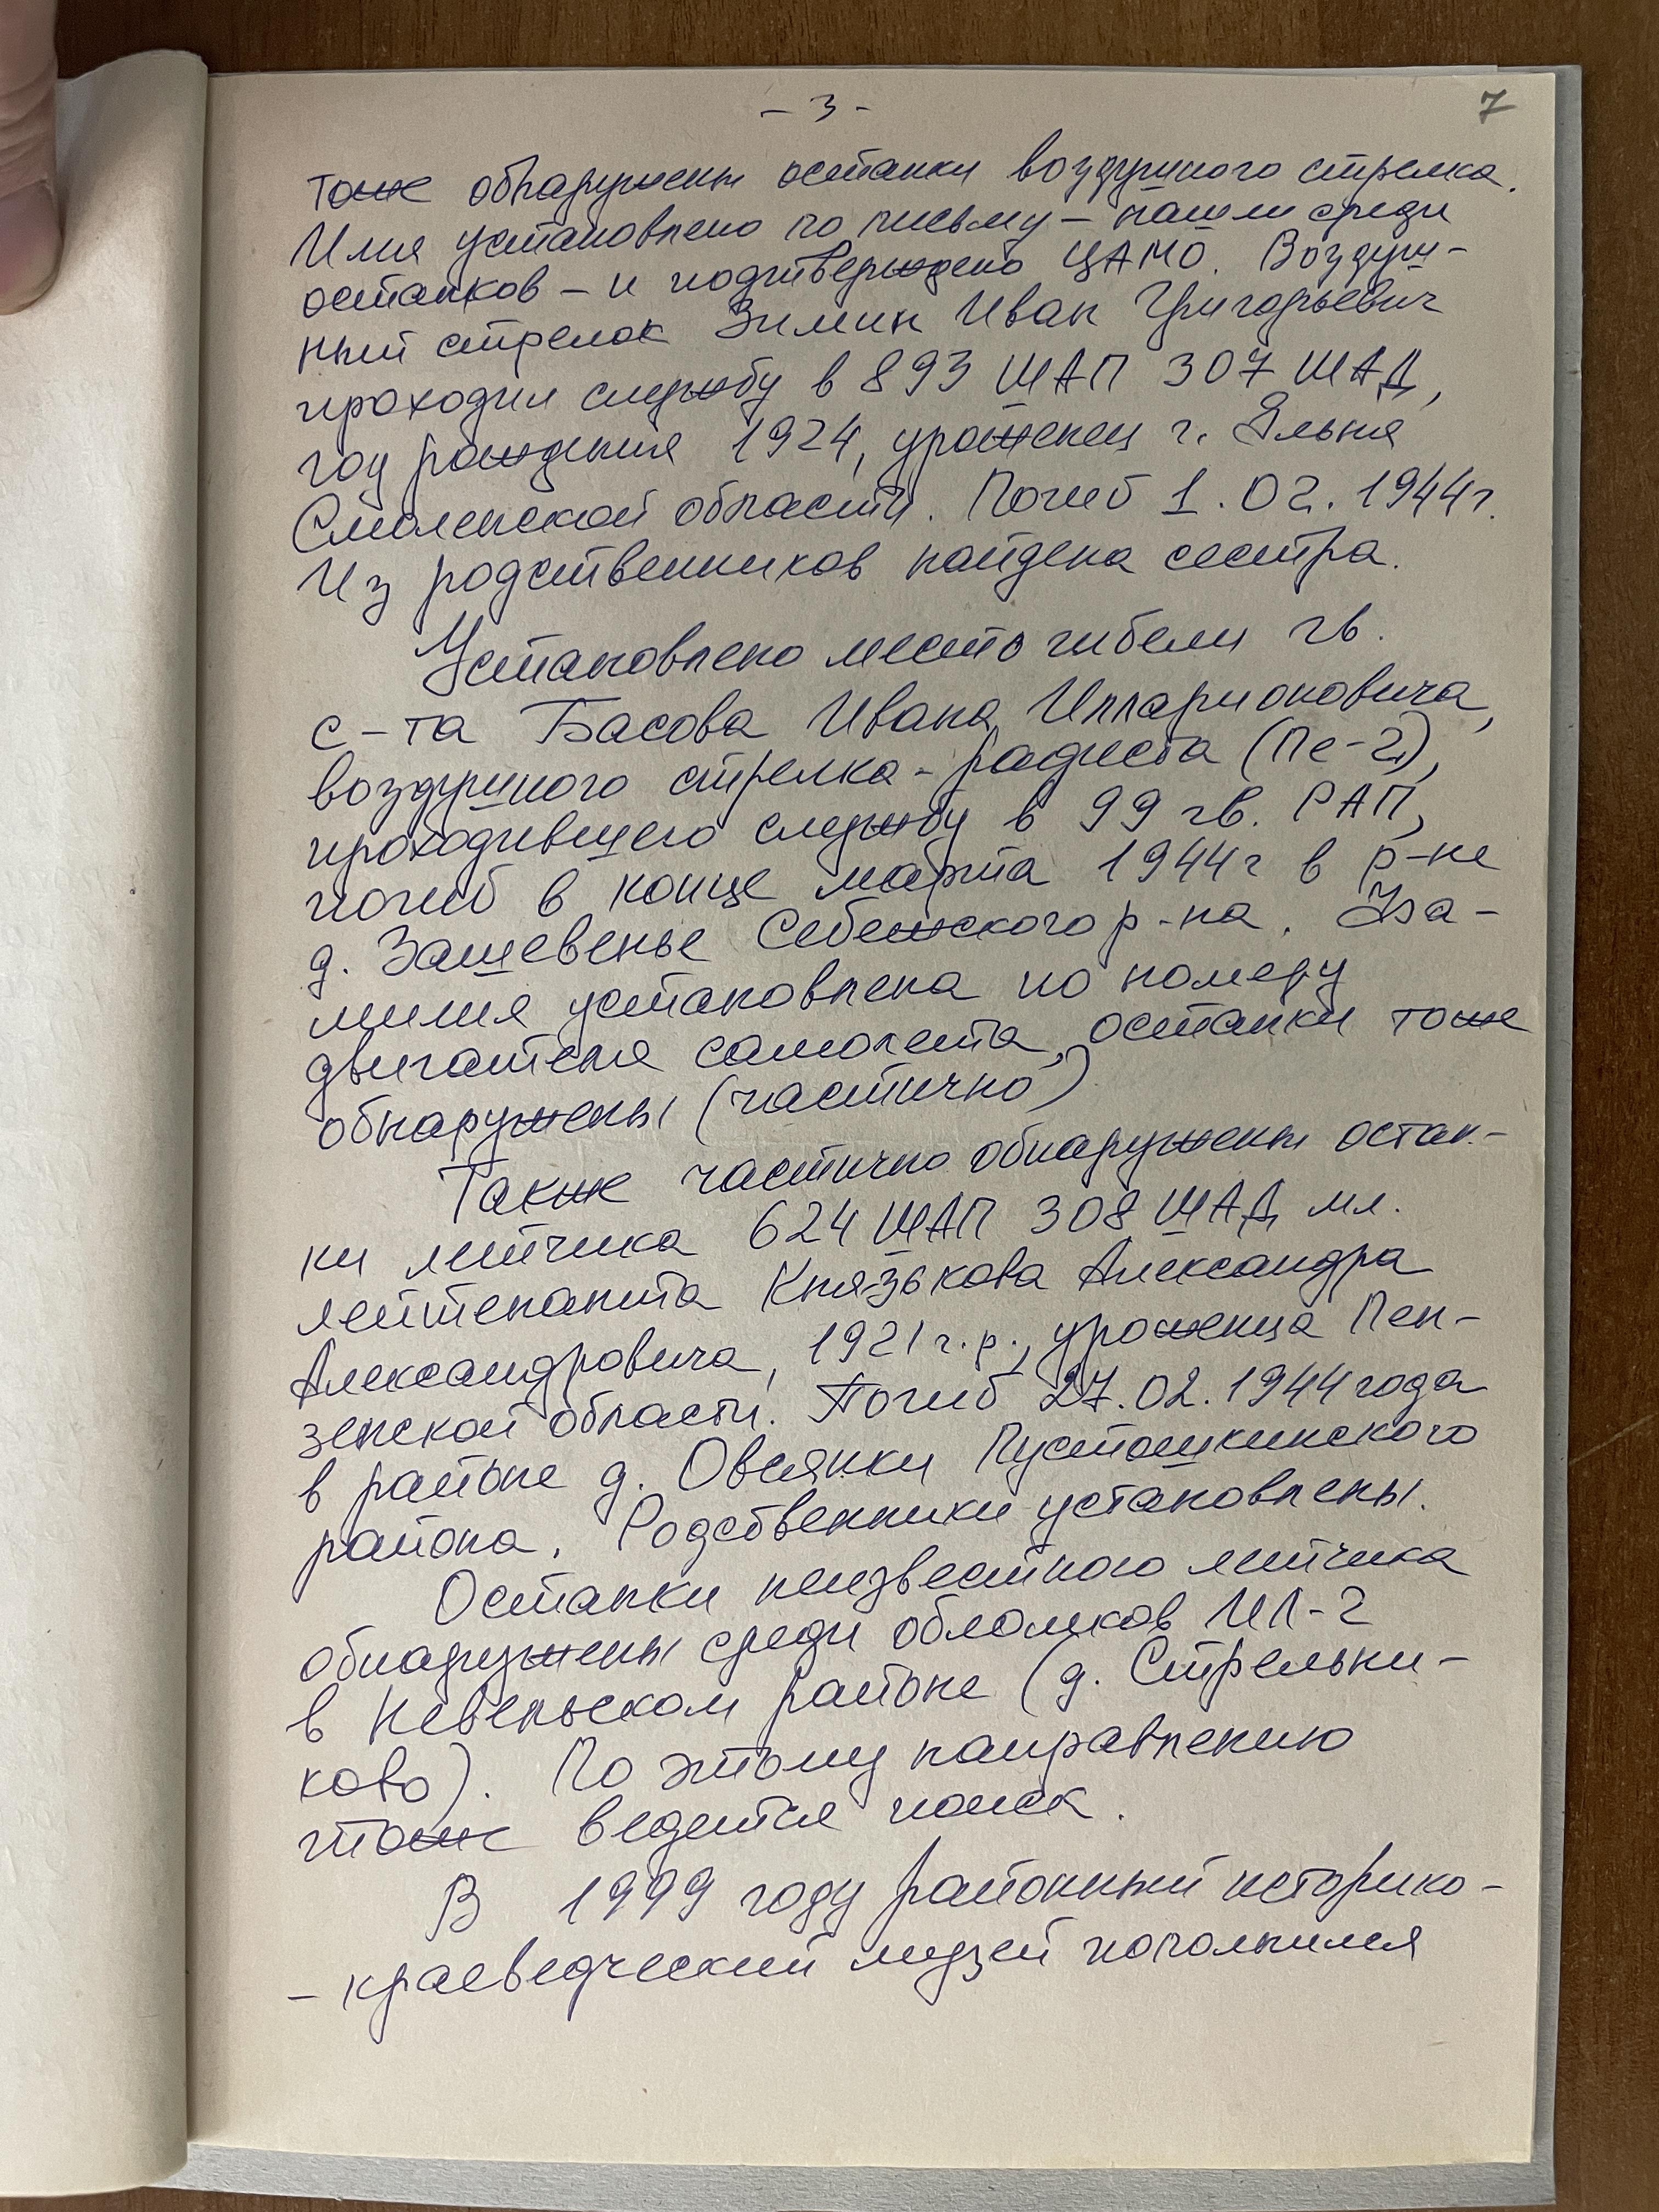 - 3 -
7
тоже обнаружены останки воздушного стрелка.
Имя установлено по письму – нашли среди
останков – и подтверждено ЦАМО. Воздуш-
ный стрелок Зимин Иван Григорьевич
проходил службу в 893 ШАП 307 ШАД,
год рождения 1924, уроженец г. Ельня
Смоленской области. Погиб 1.02.1944г.
Из родственников найдена сестра.
Установлено место гибели гв.
с-та Басова Ивана Илларионовича,
воздушного стрелка-радиста (Пе-2),
проходившего службу в 99 гв. РАП,
погиб в конце марта 1944г в р-не
д. Зашевенье Себежского р-на. Фа-
милия установлена по номеру
двигателя самолета, останки тоже
обнаружены (частично)
Также частично обнаружены остан-
ки летчика 624 ШАП 308 ШАД мл.
лейтенанта Князькова Александра
Александровича, 1921 г.р., уроженца Пен-
зенской области. Погиб 27.02.1944 года
в районе д. Овсянки Пустошкинского
района. Родственники установлены.
Останки неизвестного летчика
обнаружены среди обломков ИЛ-2
в Невельском районе (д. Стрельни-
ково). По этому направлению
тоже ведется поиск.
В 1999 году районный историко-
- краеведческий музей пополнился